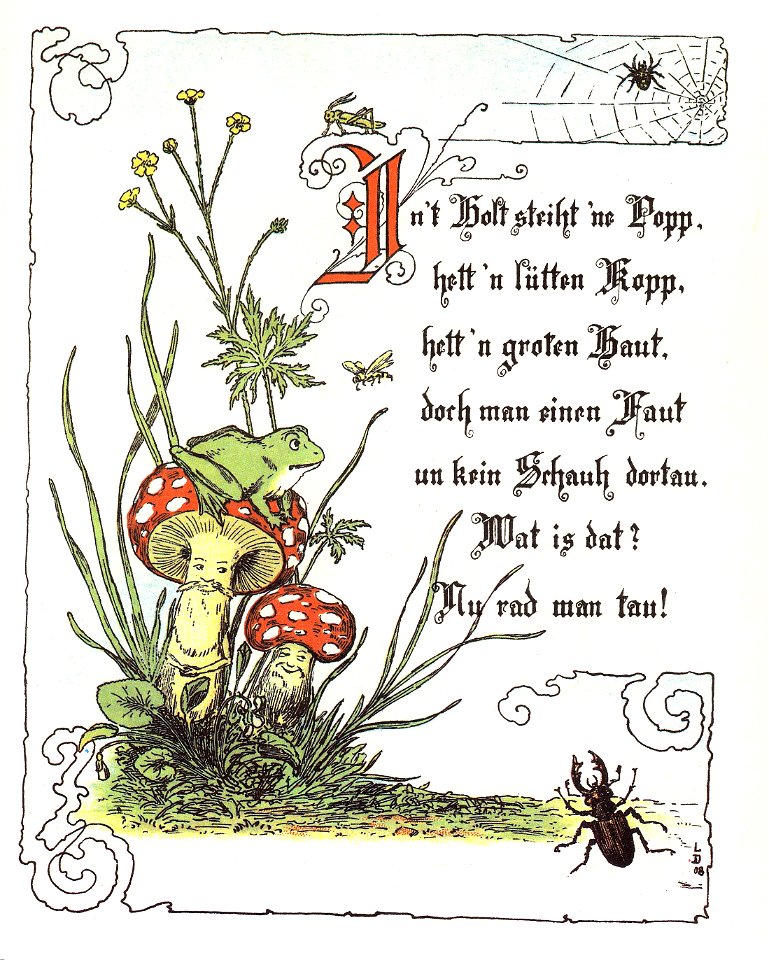 In't Holt steiht 'ne Popp,
hett 'n lütten Kopp,
hett 'n groten Haut,
doch man einen Faut
un kein Schauh dortau.
Wat is dat?
Nu rad man tau!